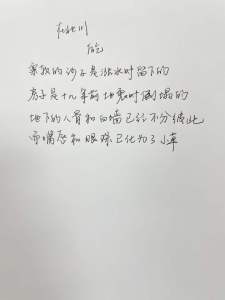 在北川
的沙子是涨水时留下的
房子是十几年前地震时倒塌的
地下的人骨和白墙已经不分彼此
而嘴唇和眼珠已化为了小草